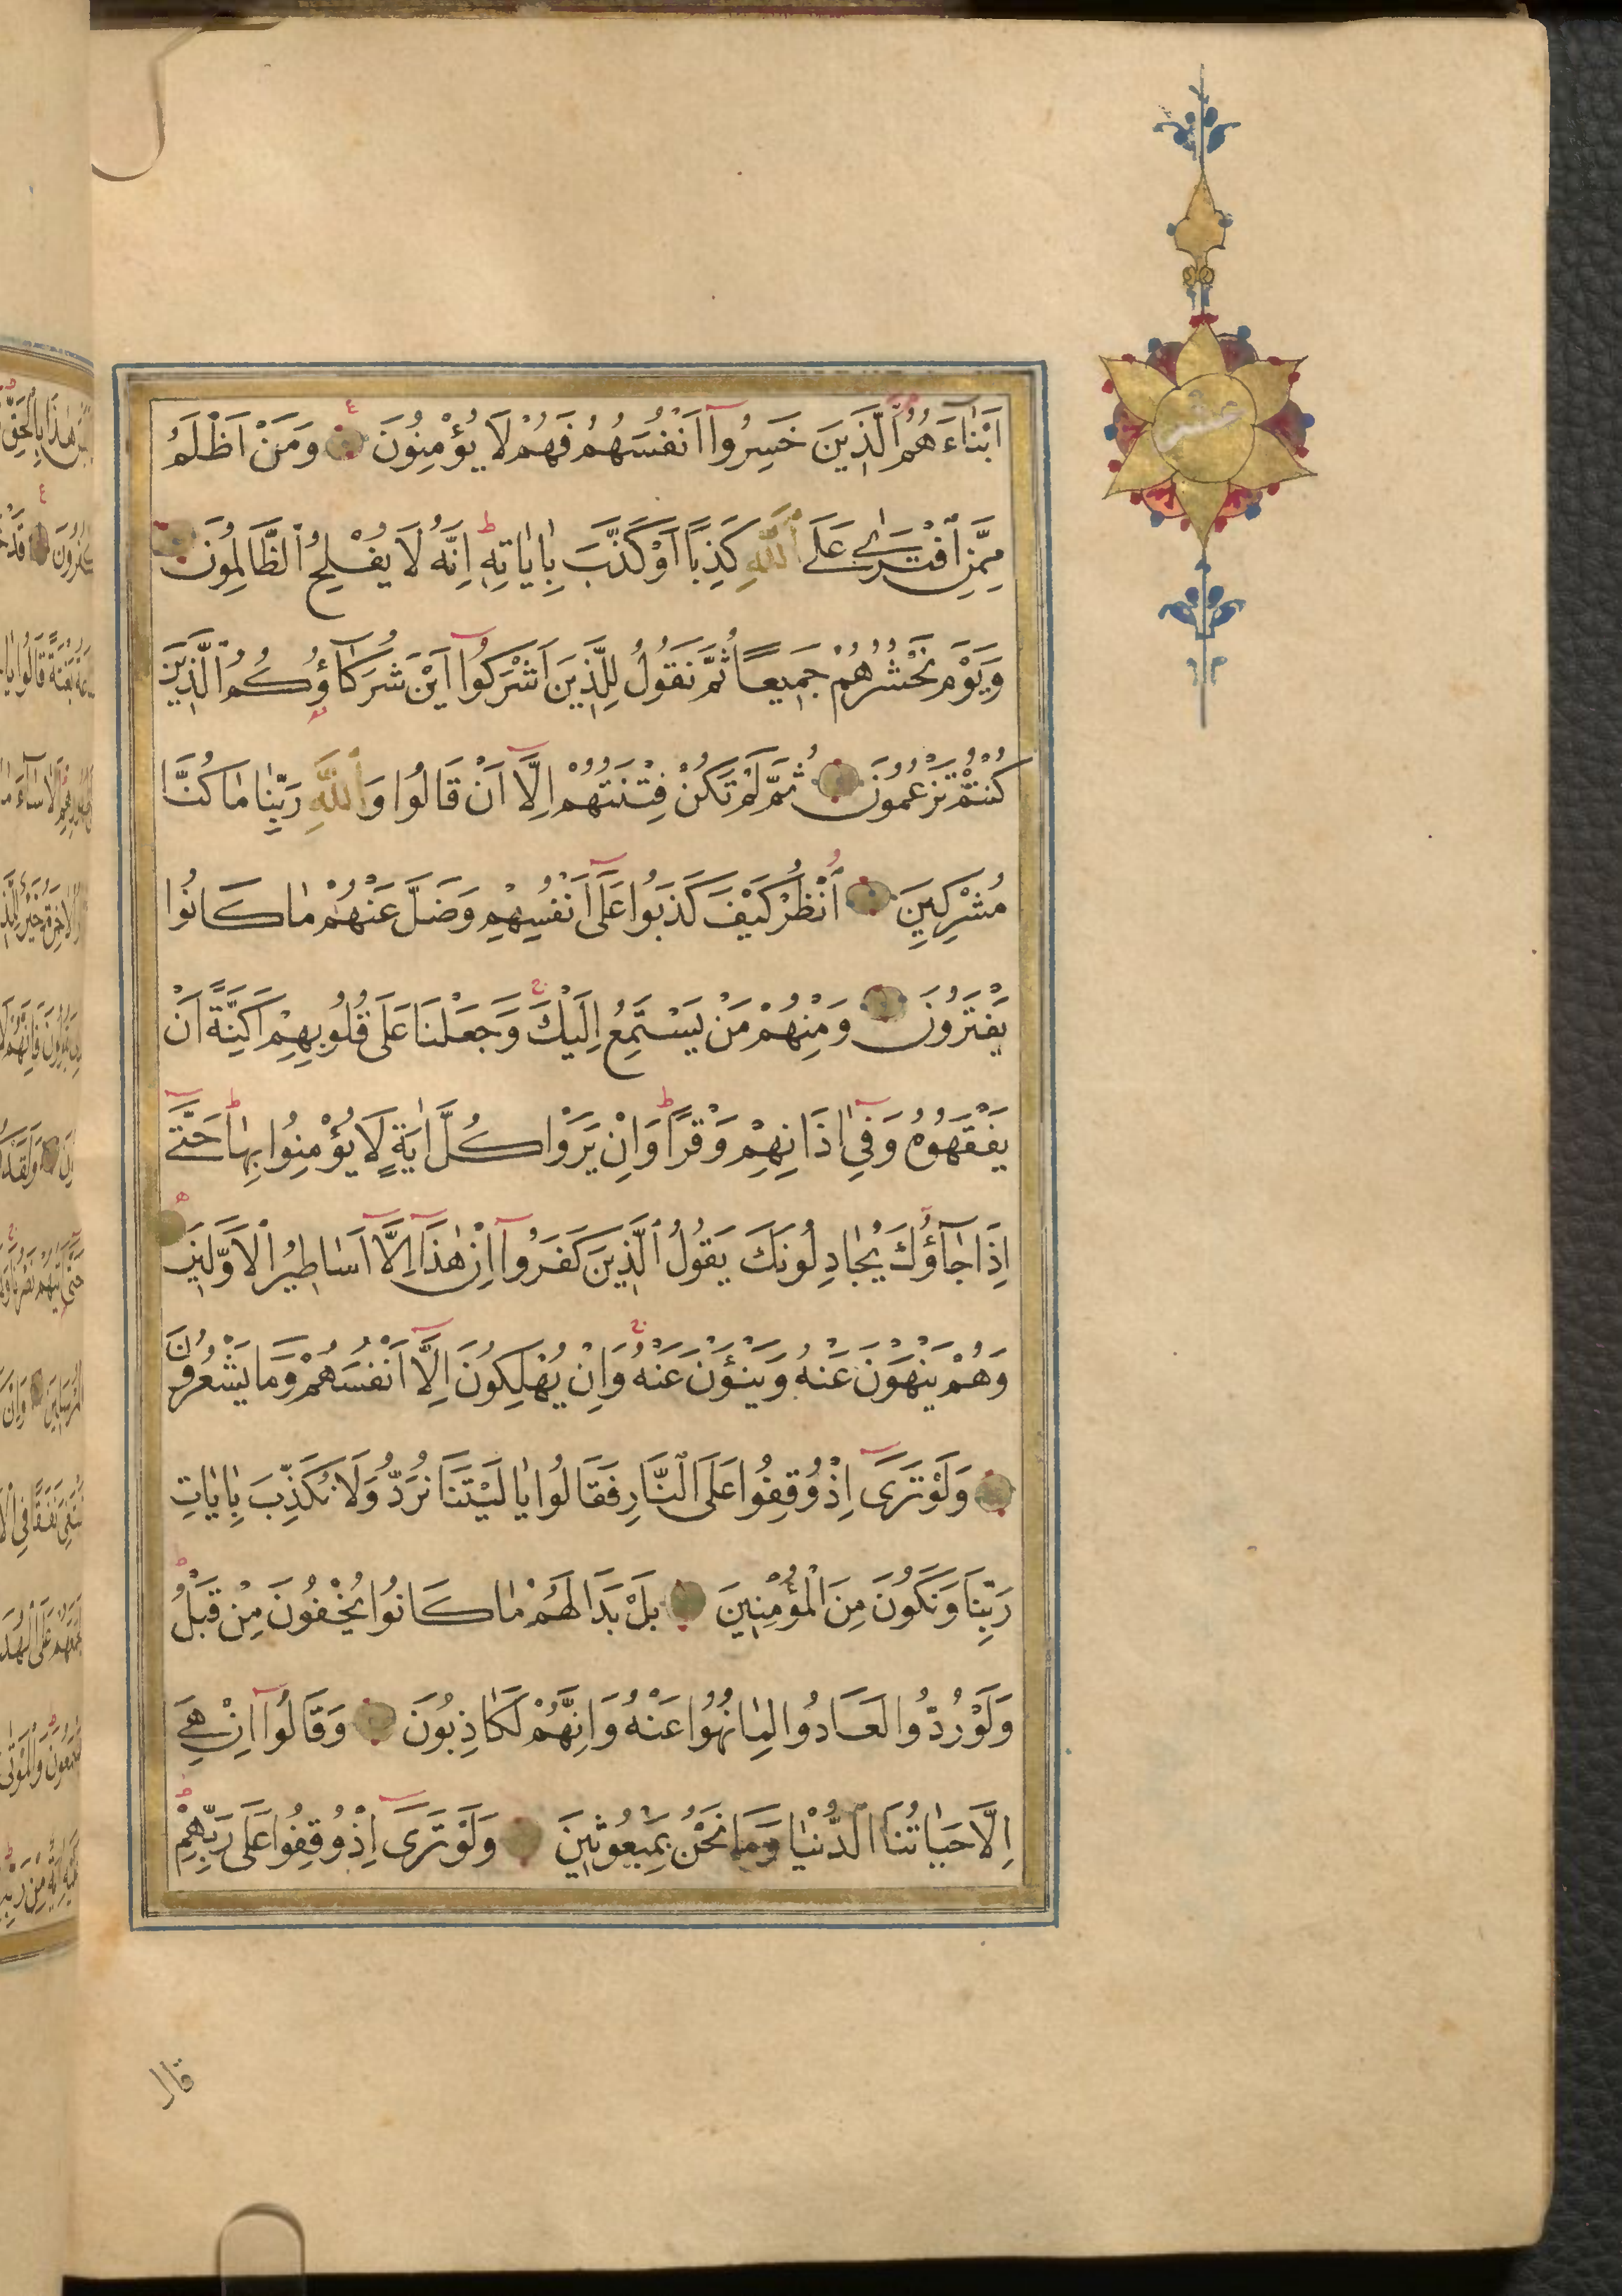 اَبْنَاءَهُمُ ٱلَّذِينَ خَسِرُٓوا اَنْفُسَهُمْ فَهُمْ لَا يُؤْمِنُونَ وَمَنْ اَظْلَمُ
مِمَّنِ ٱفْتَرٰى عَلَى ٱللّٰهِ كَذِبًا اَوْ كَذَّبَ بِاٰيَاتِهٖ اِنَّهُ لَا يُفْلِحُ ٱلظَّالِمُونَ
وَيَوْمَ نَحْشُرُهُمْ جَمِيعًا ثُمَّ نَقُولُ لِلَّذِينَ اَشْرَكُٓوا اَيْنَ شُرَكَٓاؤُكُمُ ٱلَّذِينَ
كُنْتُمْ تَزْعُمُونَ ثُمَّ لَمْ تَكُنْ فِتْنَتُهُمْ اِلَّٓا اَنْ قَالُوا وَٱللّٰهِ رَبِّنَا مَا كُنَّا
مُشْرِكِينَ اُنْظُرْ كَيْفَ كَذَبُوا عَلَٓى اَنْفُسِهِمْ وَضَلَّ عَنْهُمْ مَا كَانُوا
يَفْتَرُونَ وَمِنْهُمْ مَنْ يَسْتَمِعُ اِلَيْكَ وَجَعَلْنَا عَلَى قُلُوبِهِمْ اَكِنَّةً اَنْ
يَفْقَهُوهُ وَفِٓى اٰذَانِهِمْ وَقْرًا وَاِنْ يَرَوْا كُلَّ اٰيَةٍ لَا يُؤْمِنُوا بِهَا حَتَّٓى
اِذَا جَٓاؤُكَ يُجَادِلُونَكَ يَقُولُ ٱلَّذِينَ كَفَرُٓوا اِنْ هٰذَٓا اِلَّٓا اَسَاطِيرُ ٱلْاَوَّلِينَ
وَهُمْ يَنْهَوْنَ عَنْهُ وَيَنْـَٔوْنَ عَنْهُ وَاِنْ يُهْلِكُونَ اِلَّٓا اَنْفُسَهُمْ وَمَا يَشْعُرُونَ
وَلَوْ تَرَٓى اِذْ وُقِفُوا عَلَى ٱلنَّارِ فَقَالُوا يَا لَيْتَنَا نُرَدُّ وَلَا نُكَذِّبَ بِاٰيَاتِ
رَبِّنَا وَنَكُونَ مِنَ ٱلْمُؤْمِنِينَ بَلْ بَدَا لَهُمْ مَا كَانُوا يُخْفُونَ مِنْ قَبْلُ
وَلَوْ رُدُّوا لَعَادُوا لِمَا نُهُوا عَنْهُ وَاِنَّهُمْ لَكَاذِبُونَ وَقَالُٓوا اِنْ هِىَ
اِلَّا حَيَاتُنَا ٱلدُّنْيَا وَمَا نَحْنُ بِمَبْعُوثِينَ وَلَوْ تَرَٓى اِذْ وُقِفُوا عَلَى رَبِّهِمْ
قال
عشر